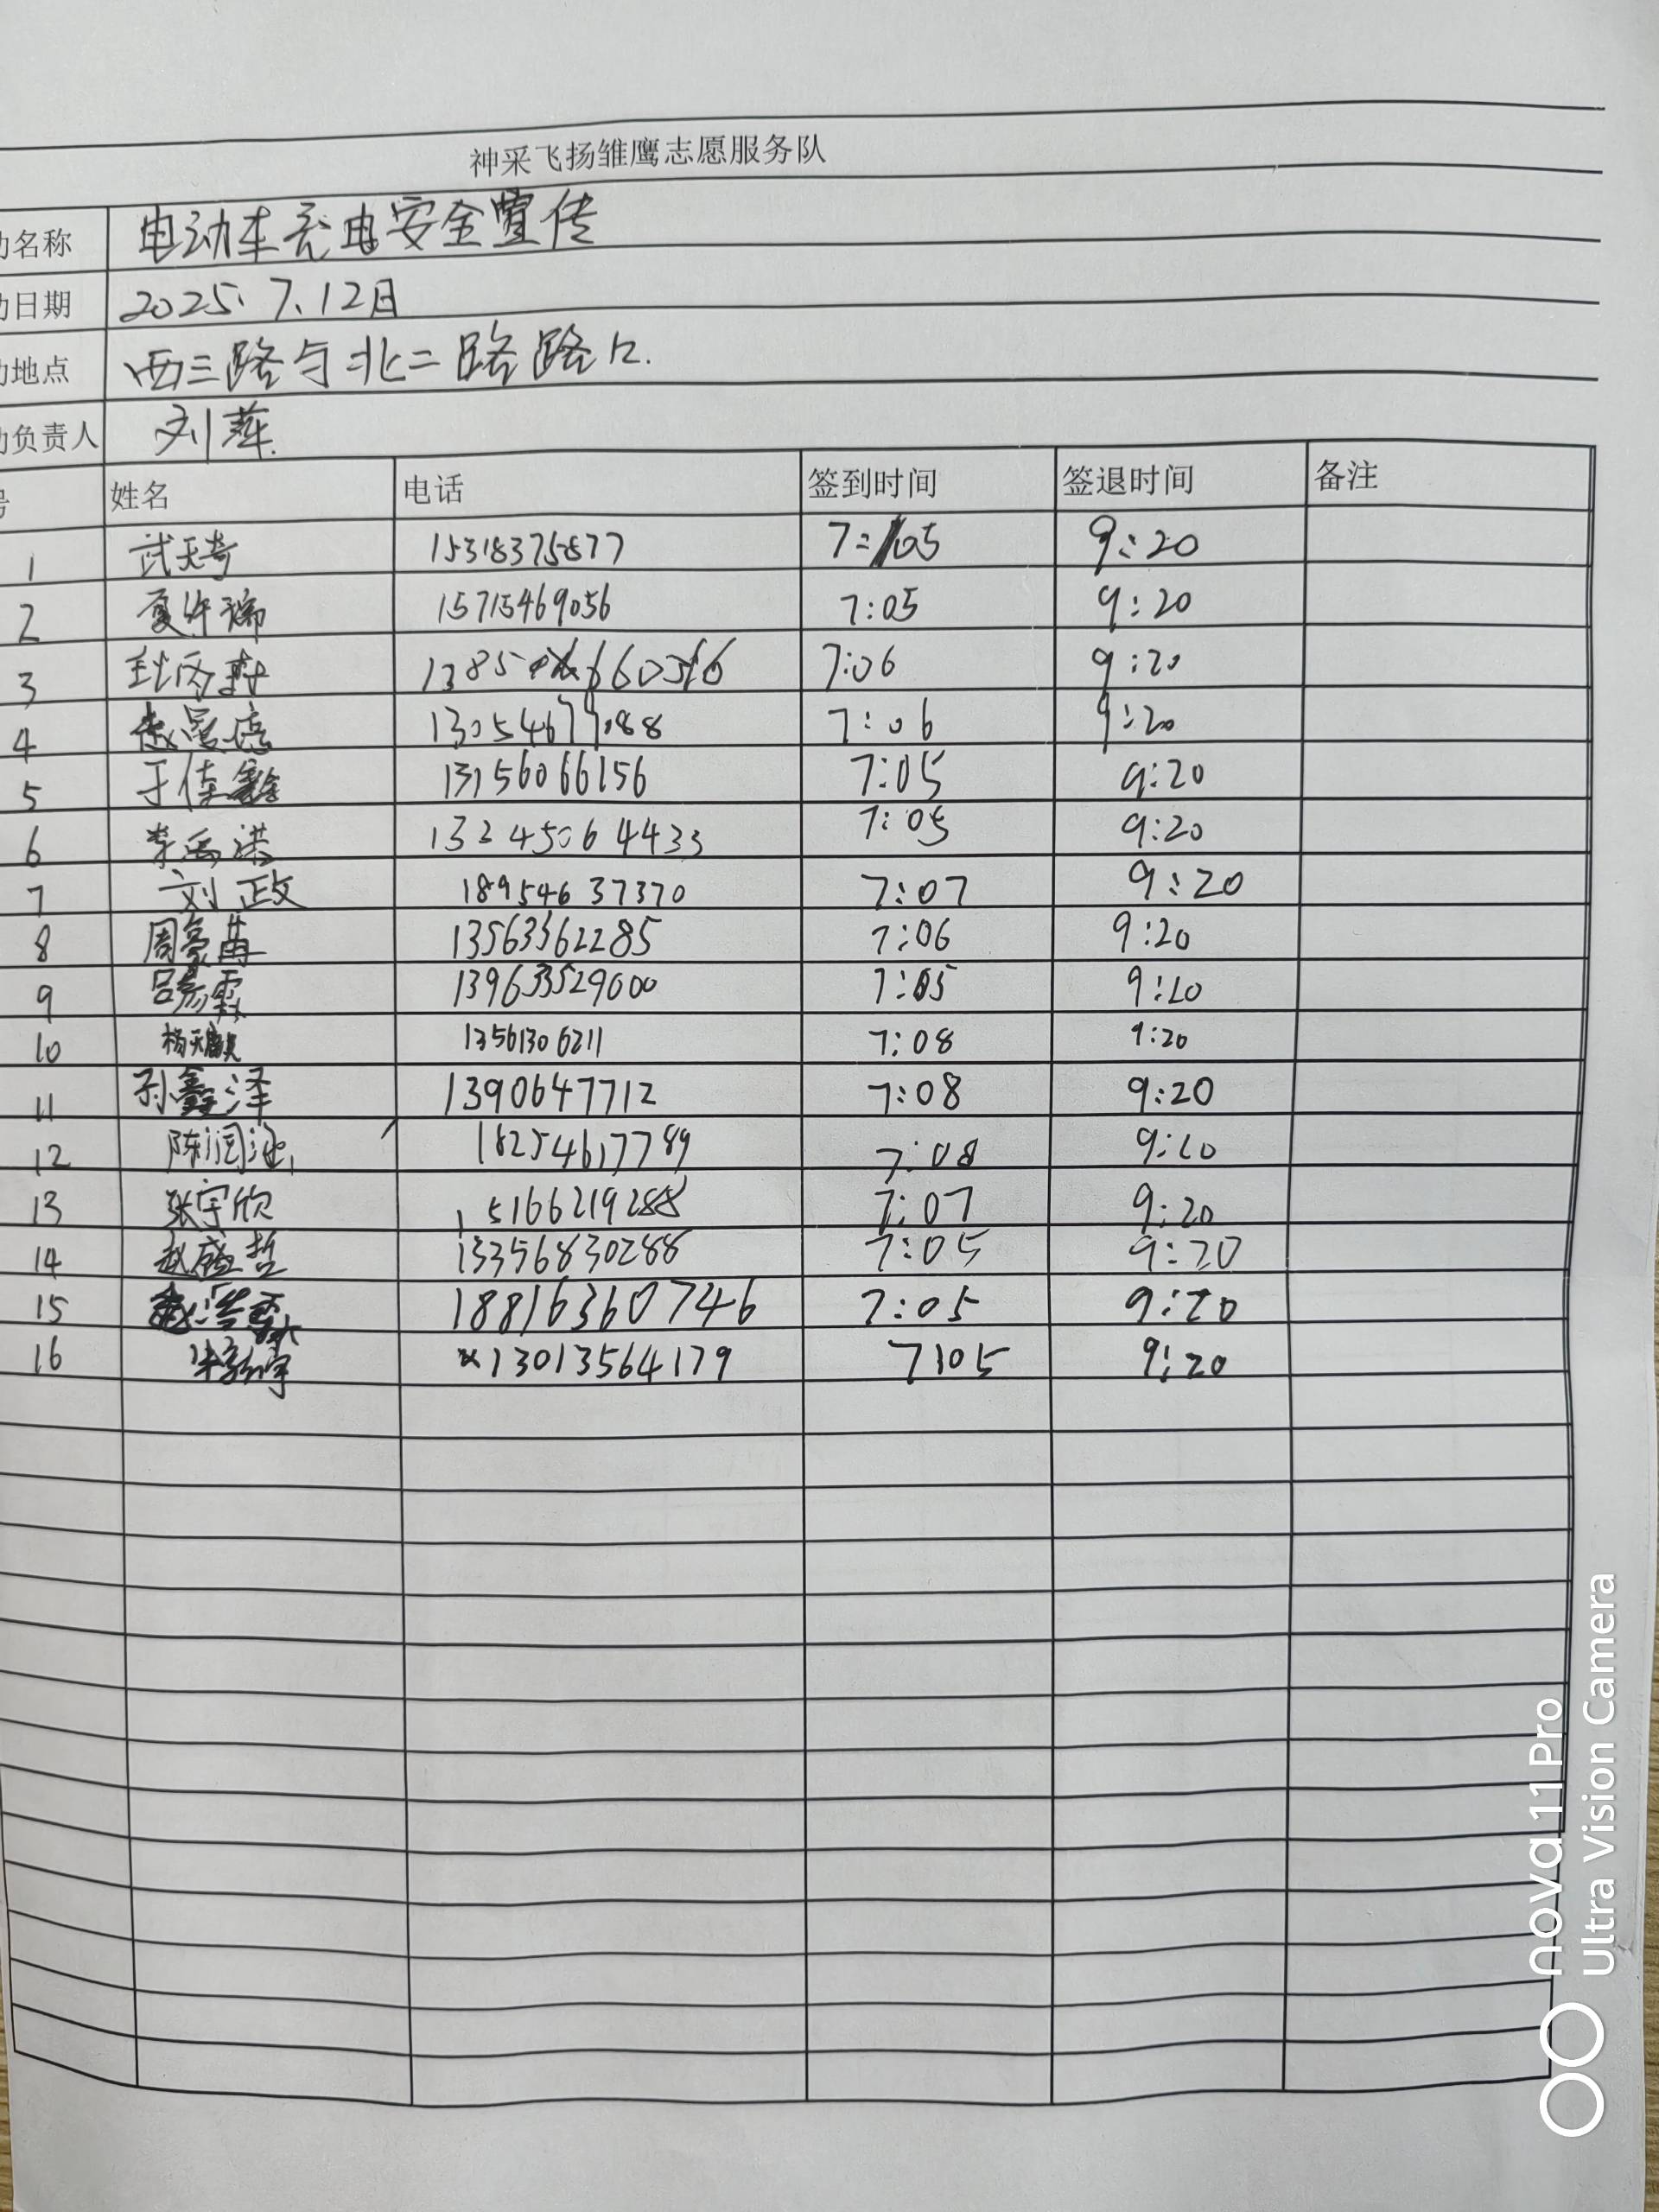 神采飞扬雏鹰志愿服务队
动名称 电动车充电安全宣传
动日期 2025.7.12日
动地点 西三路与北二路路口.
动负责人 刘萍.
号 姓名 电话 签到时间 签退时间 备注
1 武天奇 15318375877 7:05 9:20
2 夏许瑞 15715469056 7:05 9:20
3 1385 7:06 9:20
4 7:06 9:20
5 于佳鑫 13156066156 7:05 9:20
6 李禹诺 13245064433 7:05 9:20
7 刘政 18954637370 7:07 9:20
8 周豪冉 13563362285 7:06 9:20
9 吕彦霖 139633529600 7:05 9:20
10 杨天麒 13561306211 7:08 9:20
11 孙鑫泽 1390647712 7:08 9:20
12 陈润涵 18254617789 7:08 9:20
13 张宇欣 15166219288 7:07 9:20
14 赵盛哲 13356830288 7:05 9:20
15 18816360746 7:05 9:20
16 13013564179 7:05 9:20
nova 11 Pro
Ultra Vision Camera